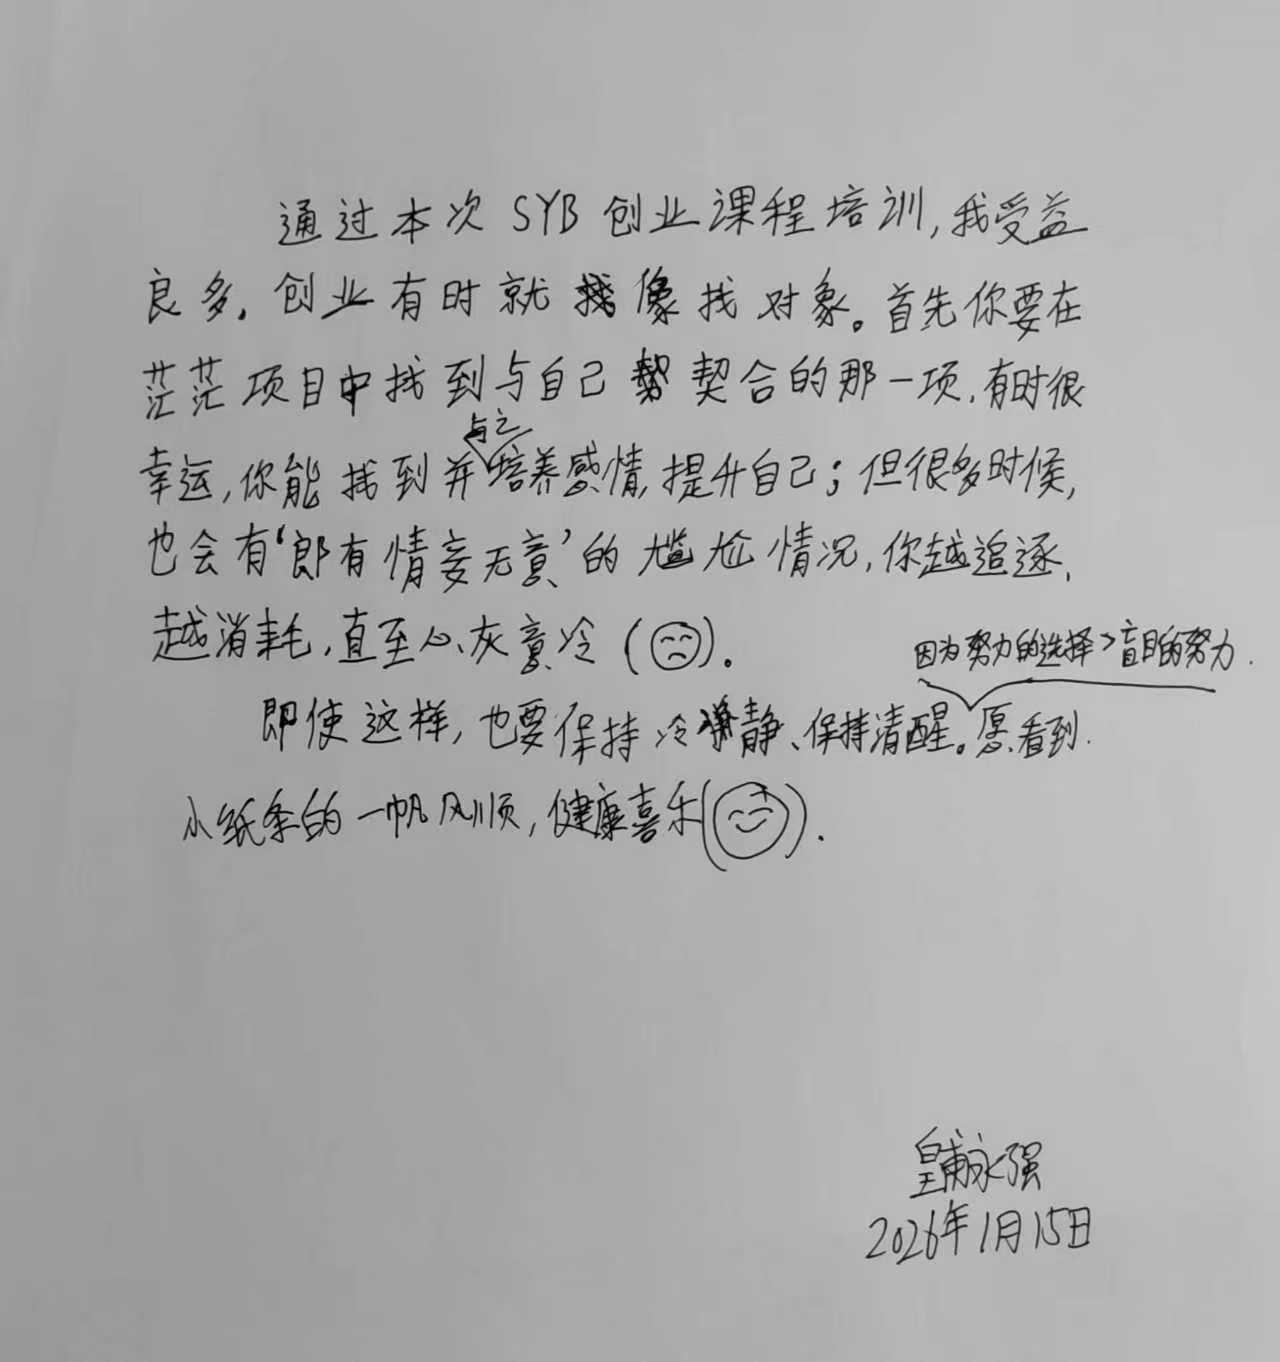 通过本次SYB创业课程培训,我受益
良多。创业有时就像找对象。首先你要在
茫茫项目中找到与自己契合的那一项,有时很
与之
幸运,你能找到并培养感情,提升自己;但很多时候,
也会有‘郎有情妾无意’的尴尬情况,你越追逐,
越消耗,直至心灰意冷(☹)。
因为努力的选择>盲目的努力.
即使这样,也要保持冷静、保持清醒。愿看到
小纸条的一帆风顺,健康喜乐(😊).
皇甫永强
2026年1月15日